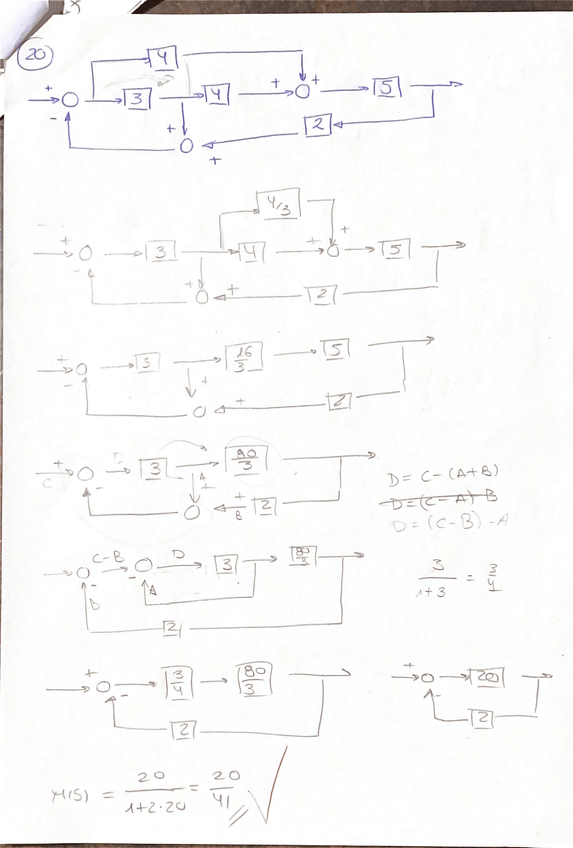 20
4
+ 3 4 + + 5
-
+ 2
+
4/3
+ 3 4 + + 5
-
+ + 2
+ 3 16/3 5
-
+
+ 2
+ 3 80/3
C - A +
+ B 2
D = C - (A+B)
D = (C-A) B
D = (C-B) - A
C-B D 3 80/3
- - A
B
2
3/(1+3) = 3/4
+ 3/4 80/3
-
2
+ 20
-
2
M(S) = 20/(1+2·20) = 20/41